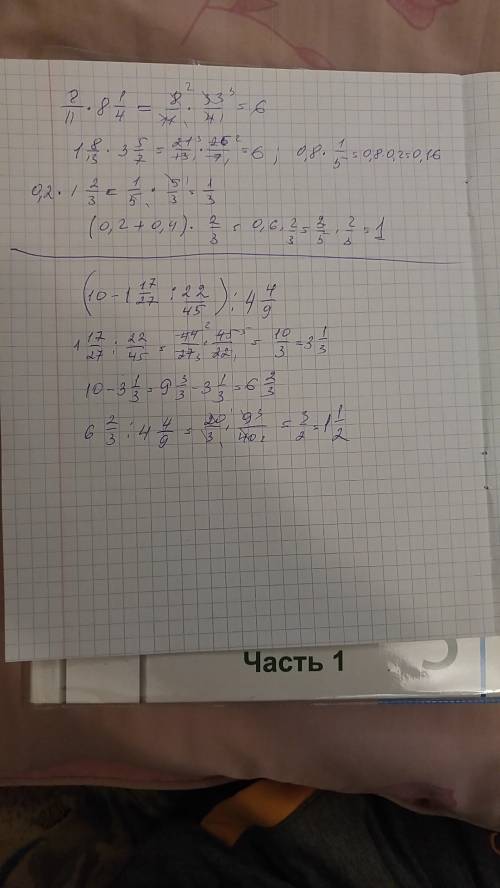 8/11 · 8 1/4 = 8/11 · 33/4 = 6
1 8/13 · 3 5/7 = 21/13 · 26/7 = 6 ; 0,8 · 1/5 = 0,8·0,2=0,16
0,2 · 1 2/3 = 1/5 · 5/3 = 1/3
(0,2 + 0,4) · 2/3 = 0,6 · 2/3 = 3/5 · 2/3 = 1
(10 - 1 17/27 : 22/45) : 4 4/9
1 17/27 : 22/45 = 44/27 · 45/22 = 10/3 = 3 1/3
10 - 3 1/3 = 9 3/3 - 3 1/3 = 6 2/3
6 2/3 : 4 4/9 = 20/3 · 9/40 = 3/2 = 1 1/2
Часть 1
5